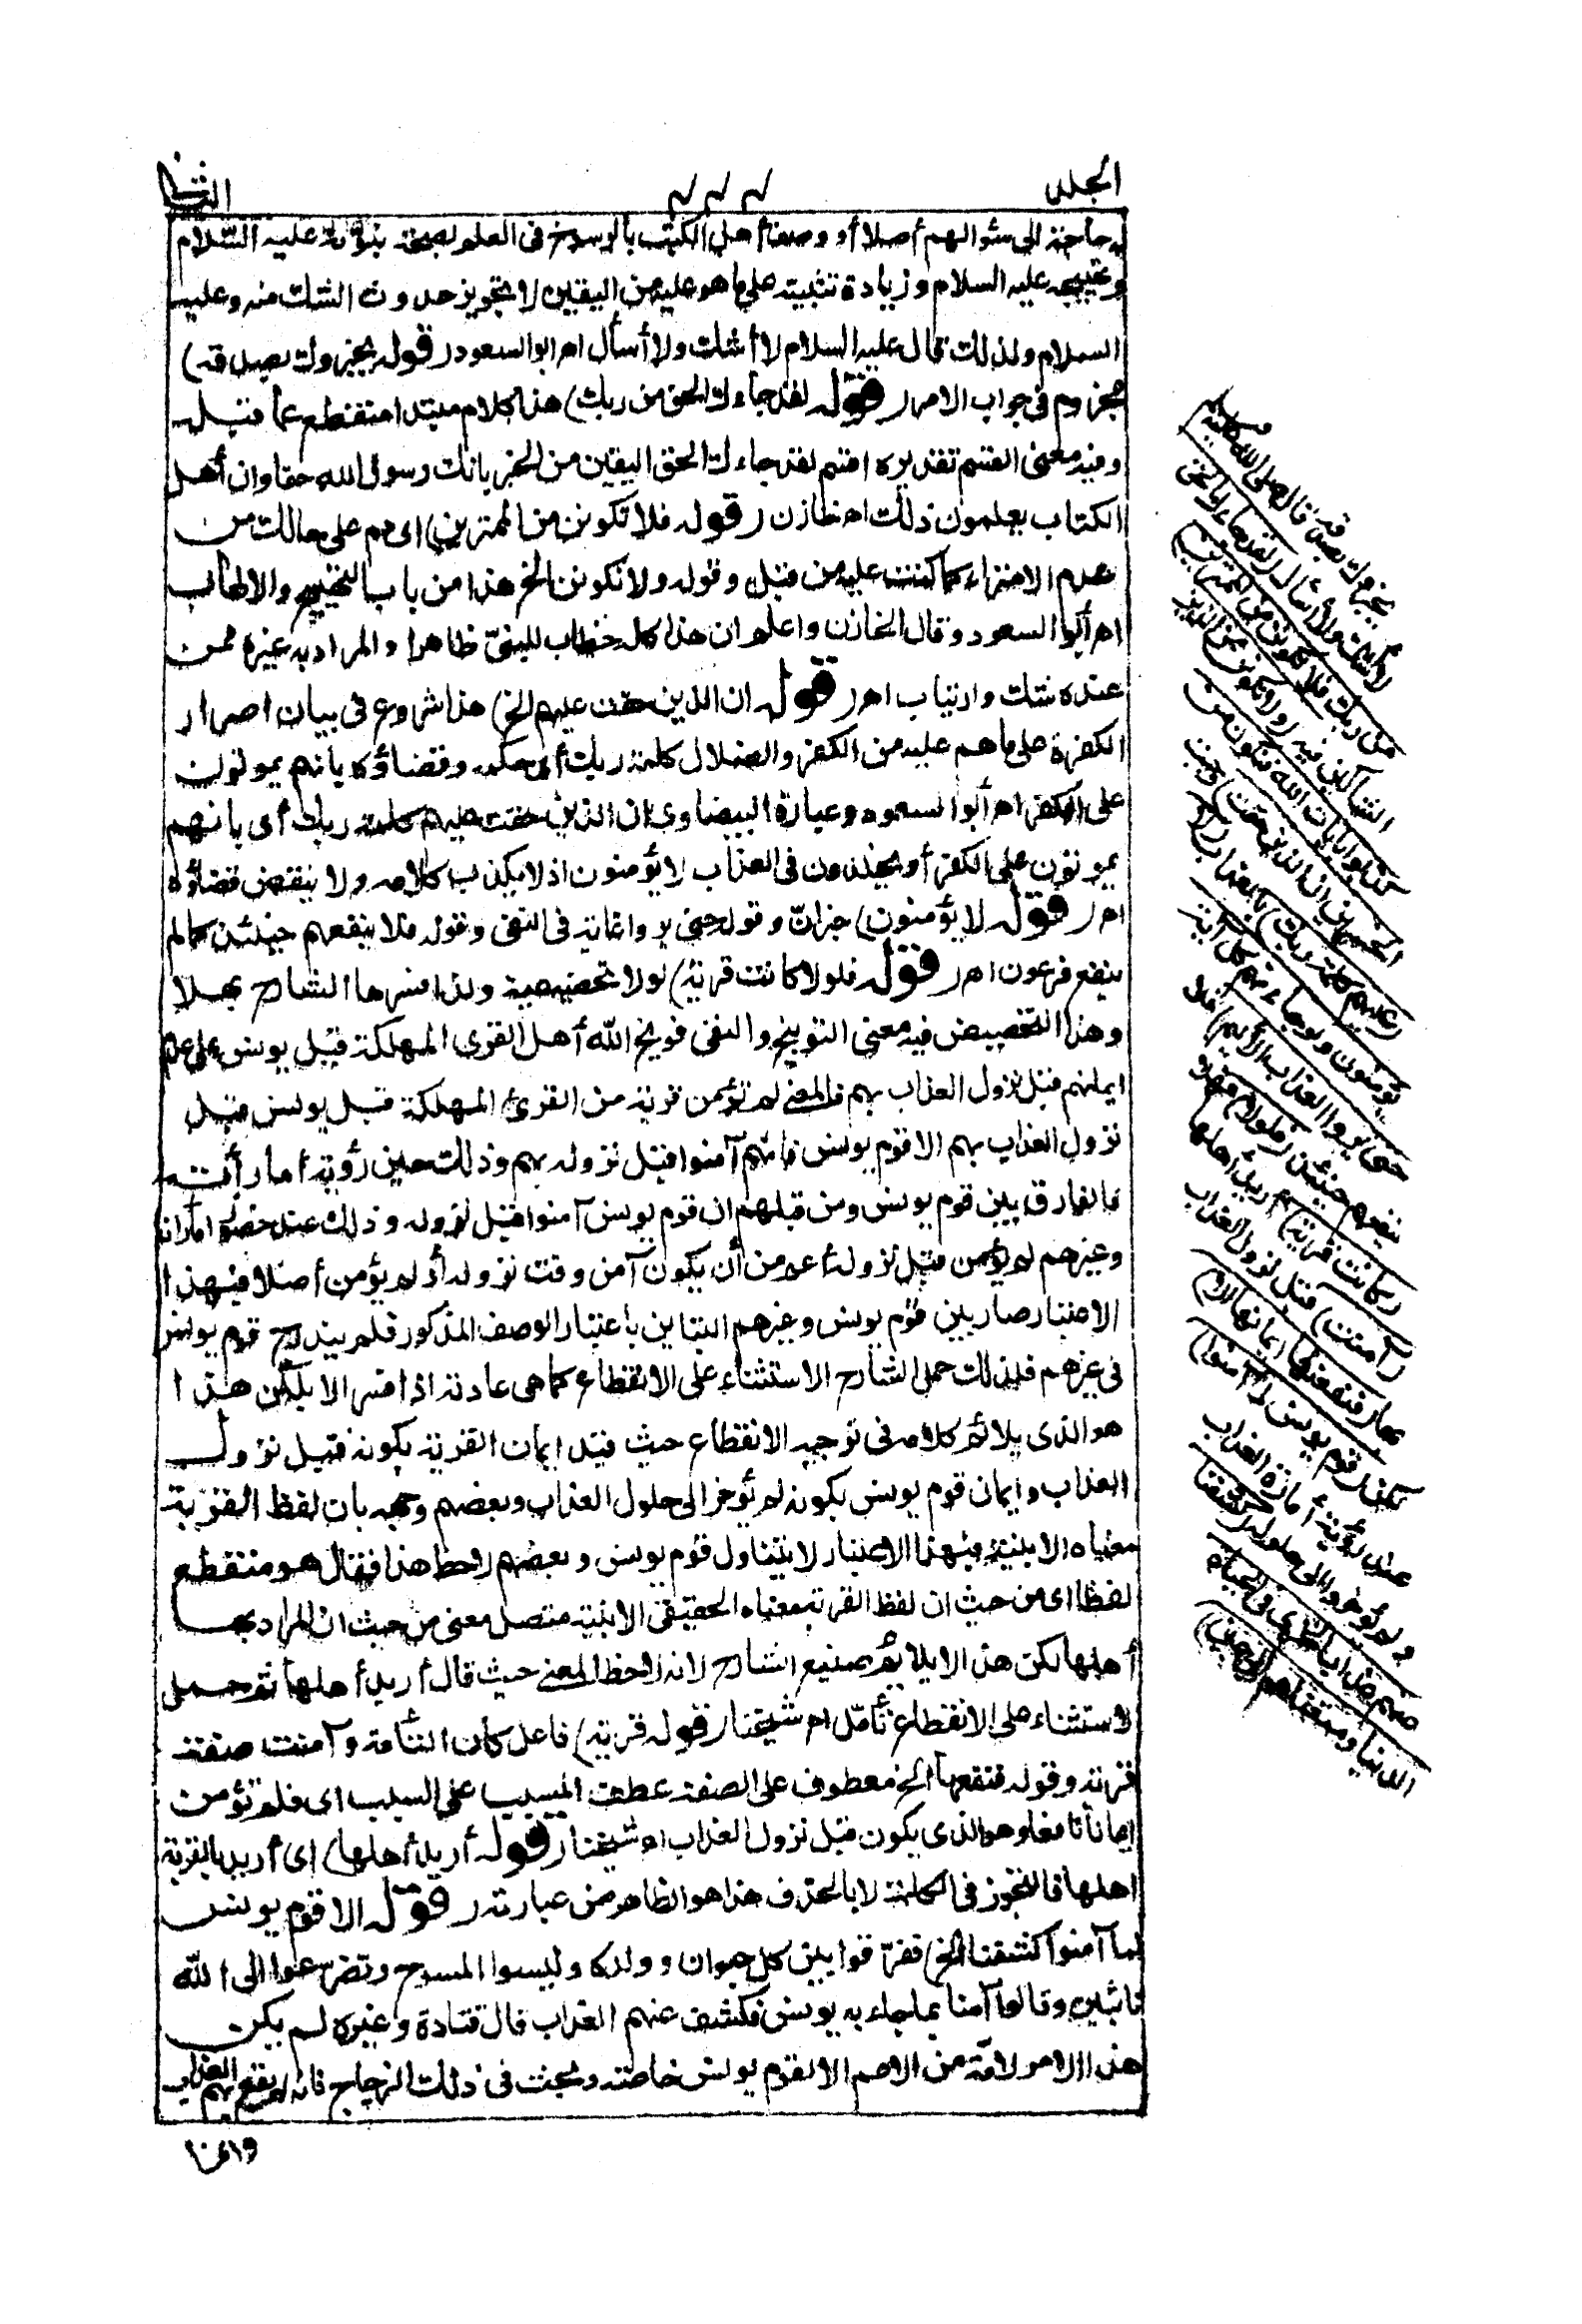 الجلد
الثانى
له حاجة الى سئوالهم أصلا أو وصف أهل الكتب بالرسوخ فى العلم بصحة نبوته عليه السلام
وتهييجه عليه السلام وزيادة تثبيته على ما هو عليه من اليقين لا تجويز حدوث الشك منه عليه
السلام ولذلك قال عليه السلام لا أشك ولا أسأل اه ابو السعود ( قوله يخبروك بصدقه )
مجزوم فى جواب الامر ( قوله لقد جاءك الحق من ربك ) هذا كلام مبتدا منقطع عما قبله
وفيه معنى القسم تقديره اقسم لقد جاءك الحق اليقين من الخبر بانك رسول الله حقا وان أهل
الكتاب يعلمون ذلك اه خازن ( قوله فلا تكونن من الممترين ) اى دم على حالك من
عدم الامتراء كما كنت عليه من قبل وقوله ولا تكونن الخ هذا من باب التهييج والالهاب
اه أبو السعود وقال الخازن واعلم ان هذا كله خطاب للنبىّ ظاهرا والمراد به غيره ممن
عنده شك وارتياب اه ( قوله ان الذين حقت عليهم الخ ) هذا شروع فى بيان اصرار
الكفرة على ما هم عليه من الكفر والضلال كلمة ربك أى حكمه وقضاؤه بانهم يموتون
على الكفر اه أبو السعود وعبارة البيضاوى ان الذين حقت عليهم كلمة ربك أى بانهم
يموتون على الكفر أو يخلدون فى العذاب لا يؤمنون اذ لا يكذب كلامه ولا ينتقض قضاؤه
اه ( قوله لا يؤمنون ) خبر انّ وقوله حتى يروا غاية فى النفى وقوله فلا ينفعهم حينئذ كما لم
ينفع فرعون اه ( قوله فلولا كانت قرية ) لولا تحضيضية ولذا فسرها الشارح بهلا
وهذا التحضيض فيه معنى التوبيخ والنفى فوبخ الله أهل القرى المهلكة قبل يونس على عدم
ايمانهم قبل نزول العذاب بهم فالمعنى لم تؤمن قرية من القرى المهلكة قبل يونس قبل
نزول العذاب بهم الا قوم يونس فانهم آمنوا قبل نزوله بهم وذلك حين رؤية أماراته
فالفارق بين قوم يونس ومن قبلهم ان قوم يونس آمنوا قبل نزوله وذلك عند حضور اماراته
وغيرهم لم يؤمن قبل نزوله أعم من أن يكون آمن وقت نزوله أو لم يؤمن أصلا فبهذا
الاعتبار صار بين قوم يونس وغيرهم التباين باعتبار الوصف المذكور فلم يندرج قوم يونس
فى غيرهم فلذلك حمل الشارح الاستثناء على الانقطاع كما هى عادته اذا فسر الا بلكن هذا
هو الذى يلائم كلامه فى توجيه الانقطاع حيث قيد ايمان القرية بكونه قبل نزول
العذاب وايمان قوم يونس بكونه لم يؤخر الى حلول العذاب وبعضهم وجهه بان لفظ القرية
معناه الابنية فبهذا الاعتبار لا يتناول قوم يونس وبعضهم لاحظ هذا فقال هو منقطع
لفظا اى من حيث ان لفظ القرية معناه الحقيقى الابنية متصل معنى من حيث ان المراد بها
أهلها لكن هذا لا يلائم صنيع الشارح لانه لاحظ المعنى حيث قال أريد أهلها ثم حمل
الاستثناء على الانقطاع تأمّل اه شيخنا ( قوله قرية ) فاعل كان التامة وآمنت صفة
قرية وقوله فنفعها الخ معطوف على الصفة عطف المسبب على السبب اى فلم تؤمن
ايمانا نافعا وهو الذى يكون قبل نزول العذاب اه شيخنا ( قوله أريد أهلها ) اى أريد بالقرية
اهلها فالتجوز فى الكلمة لا بالحذف هذا هو الظاهر من عبارته ( قوله الا قوم يونس
لما آمنوا كشفنا الخ ) ففرّقوا بين كل حيوان وولده ولبسوا المسوح وتضرعوا الى الله
تائبين وقالوا آمنا بما جاء به يونس فكشف عنهم العذاب قال قتادة وغيره لم يكن
هذا الامر لامّة من الامم الا لقوم يونس خاصة وبحث فى ذلك الزجاج فانه لم يقع بهم العذاب
يخبروك بصدقه قال صلى الله عليه وسلم
لا أشك ولا أسأل (لقد جاءك الحق
من ربك فلا تكونن من الممترين)
الشاكين فيه (ولا تكونن من الذين
كذبوا بايات الله فتكون من
الخسرين ان الذين حقت) وجبت
(عليهم كلمة ربك) بالعذاب (لا
يؤمنون ولو جاءتهم كل اية
حتى يروا العذاب الأليم) فلا
ينفعهم حينئذ (فلولا) فهلا
(كانت قرية) أريد أهلها
(آمنت) قبل نزول العذاب
بها (فنفعها إيمانها إلا)
لكن (قوم يونس لما آمنوا)
عند رؤية أمارة العذاب
ولم يؤخروا الى حلوله (كشفنا
عنهم عذاب الخزى فى الحيوة
الدنيا ومتعناهم الى حين)